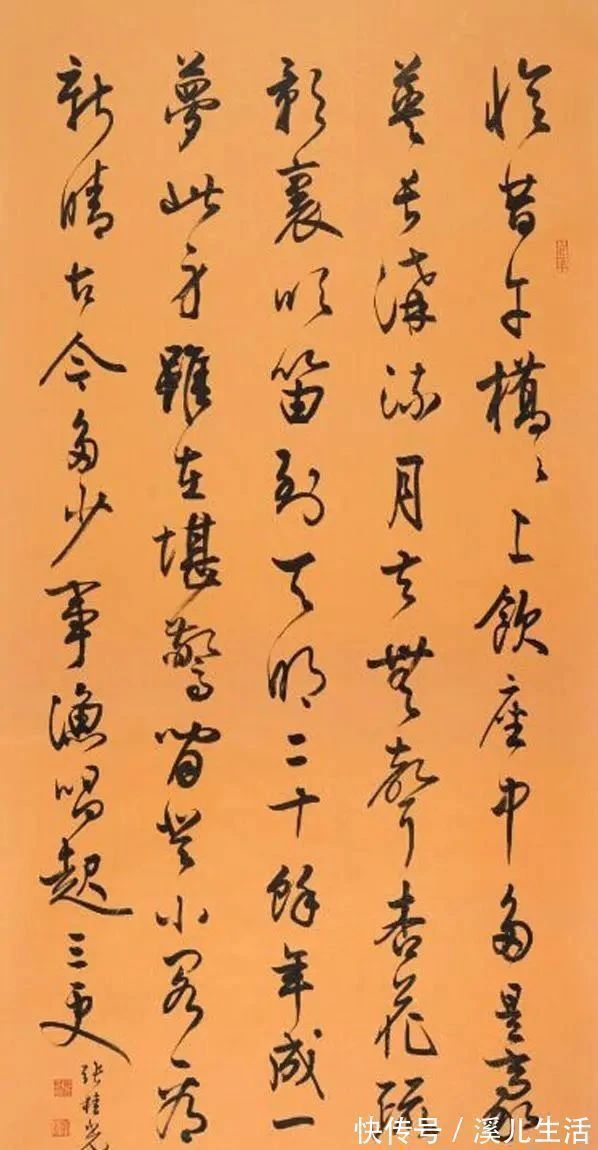 憶昔午橋々上飲座中多是豪
英長溝流月去無聲杏花疏
影裏吹笛到天明二十餘年成一
夢此身雖在堪驚閒登小閣看
新晴古今多少事漁唱起三更
張桂光
快传号 / 溪儿生活